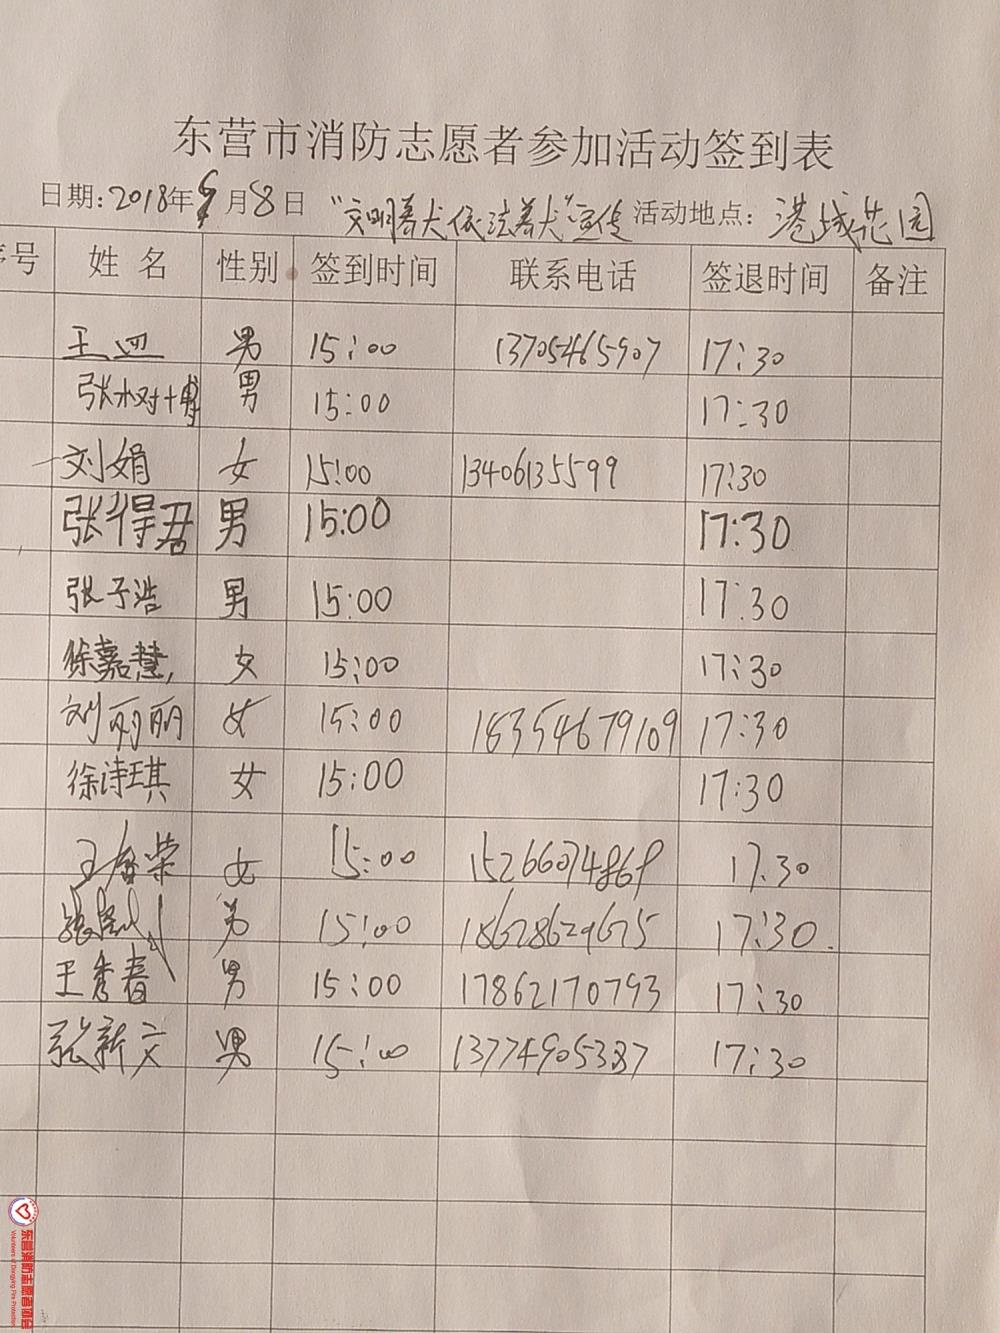 东营市消防志愿者参加活动签到表
日期:2018年9月8日 "文明养犬依法养犬"宣传 活动地点: 港城花园
序号 姓名 性别 签到时间 联系电话 签退时间 备注
王四 男 15:00 13705465907 17:30
张树博 男 15:00 17:30
刘娟 女 15:00 13406135599 17:30
张得君 男 15:00 17:30
张子浩 男 15:00 17:30
徐嘉慧 女 15:00 17:30
刘丽丽 女 15:00 18354679109 17:30
徐诗琪 女 15:00 17:30
王春荣 女 15:00 15266074868 17:30
张 男 15:00 18678629675 17:30.
王秀春 男 15:00 17862170793 17:30
张新文 男 15:00 13774905387 17:30
东营消防志愿者协会
Volunteers of Dongying Fire Protection